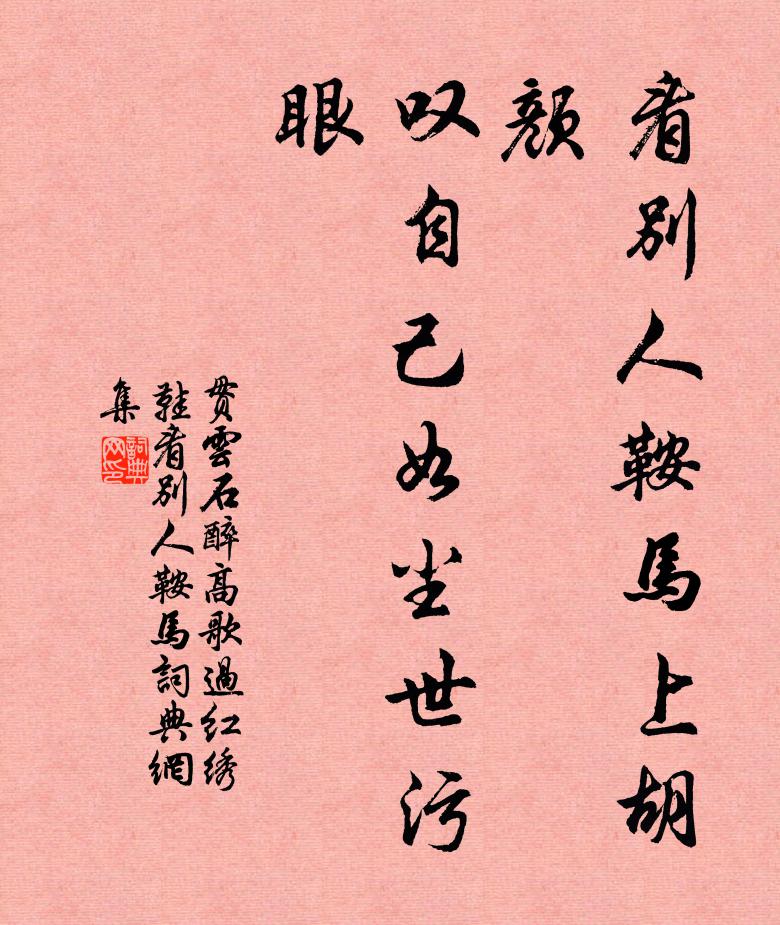 看别人鞍馬上胡
顔
叹自己如尘世污
眼
貫雲石醉高歌過红绣
鞋看别人鞍馬詞典網
集
詞典
网印